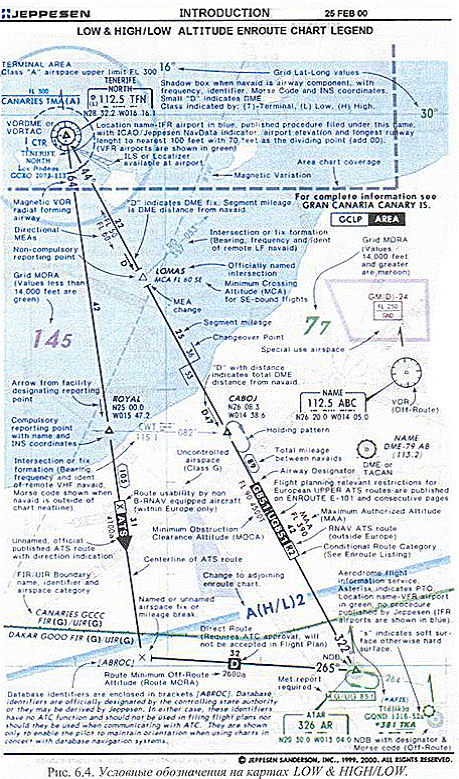 JEPPESEN INTRODUCTION 25 FEB 00
LOW & HIGH/LOW ALTITUDE ENROUTE CHART LEGEND
TERMINAL AREA
Class "A" airspace upper limit FL 300
FL 300
CANARIES TMA(A)
TENERIFE
NORTH
112.5 TFN
N28 32.2 W016 16.1
16°
Grid Lat-Long values
Shadow box when navaid is airway component, with
frequency, identifier, Morse Code and INS coordinates.
Small "D" indicates DME
Class indicated by: (T)-Terminal, (L) Low, (H) High.
30°
VORDME or
VORTAC
CTR
TENERIFE
NORTH
Los Rodeos
GCXO
Location name-IFR airport in blue, published procedure filed under this name,
with ICAO/Jeppesen NavData indicator, airport elevation and longest runway
lenght to nearest 100 feet with 70 feet as the dividing point (add 00).
(VFR airports are shown in green)
ILS or Localizer
available at airport
Area chart coverage
Magnetic Variation
164
144°
Magnetic VOR
radial forming
airway
"D" indicates DME fix. Segment mileage
is DME distance from navaid.
22
D
For complete information see
GRAN CANARIA CANARY IS.
GCLP AREA
Directional
MEAs
Non-compulsory
reporting point
Intersection or fix formation
(Bearing, frequency and ident
of remote LF navaid)
Grid MORA
(Values
14,000 feet
and greater
are maroon)
LOMAS
MCA FL 60 SE
Officially named
intersection
Minimum Crossing
Altitude (MCA)
for SE-bound flights
Grid MORA
(Values less than
14,000 feet are
green)
42
MEA
change
145
77
GM(D)-24
FL 250
GND
Segment mileage
25
36
53
Changeover Point
Special use airspace
"D" with distance
indicates total DME
distance from navaid.
Arrow from facility
designating reporting
point
ROYAL
N25 00.0
W015 47.2
CABOJ
N26 08.3
W014 38.6
D47
NAME
112.5 ABC
N26 20.0 W014 05.0
VOR
(Off-Route)
Compulsory
reporting point
with name and
INS coordinates
CWT
115.1
082°
Holding pattern
NAME
DME-79 AB
(113.2)
DME or
TACAN
Intersection or fix
formation (Bearing,
frequency and ident
of remote VHF navaid,
Morse code shown when
navaid is outside of
chart neatline)
(105)
Uncontrolled
airspace
(Class G)
(89)
Total mileage
between navaids
Airway Designator
Flight planning relevant restrictions for
European UPPER ATS routes are published
on ENROUTE E-101 and consecutive pages
Route usability by non
B-RNAV equipped aircraft
(within Europe only)
X
ATS
31
Maximum Authorized Altitude
(MAA)
MAA
FL 390
42
RNAV ATS route
(outside Europe)
Conditional Route Category
(See Enroute Listing)
Minimum Obstruction
Clearance Altitude (MOCA)
Unnamed, official
published ATS route
with direction indication
Centerline of ATS route
FIR/UIR Boundary
name, identifier and
airspace category
Change to adjoining
enroute chart.
Aerodrome flight
information service.
Asterisk indicates PTO.
Location name-VFR airport
in green, no procedure
published by Jeppesen (IFR
airports are shown in blue)
CANARIES GCCC
FIR(G)/UIR(G)
Named or unnamed
airspace fix or
mileage break
A(H/L)2
DAKAR GOOO FIR(G)/UIR(G)
Direct Route
(Requires ATC approval, will
not be accepted in Flight Plan)
322°
"s" indicates soft sur-
face otherwise hard
surface.
[ABROC]
X
32
D
2680a
265°
NDB
Route Minimum Off-Route
Altitude (Route MORA)
Met report
required
ATAR
326 AR
N20 30.0 W013 04.0
(AFIS)
381 TKA
NDB with designator &
Morse code (Off-Route)
Database identifiers are enclosed in brackets [ABROC]. Database
identifiers are officially designated by the controlling state authority
or they may be derived by Jeppesen. In either case, these identifiers
have no ATC function and should not be used in filing flight plans nor
should they be used when communicating with ATC. They are shown
only to enable the pilot to maintain orientation when using charts in
concert with database navigation systems.
© JEPPESEN SANDERSON, INC., 1999, 2000. ALL RIGHTS RESERVED.
Рис. 6.4. Условные обозначения на картах LOW & HIGH/LOW.